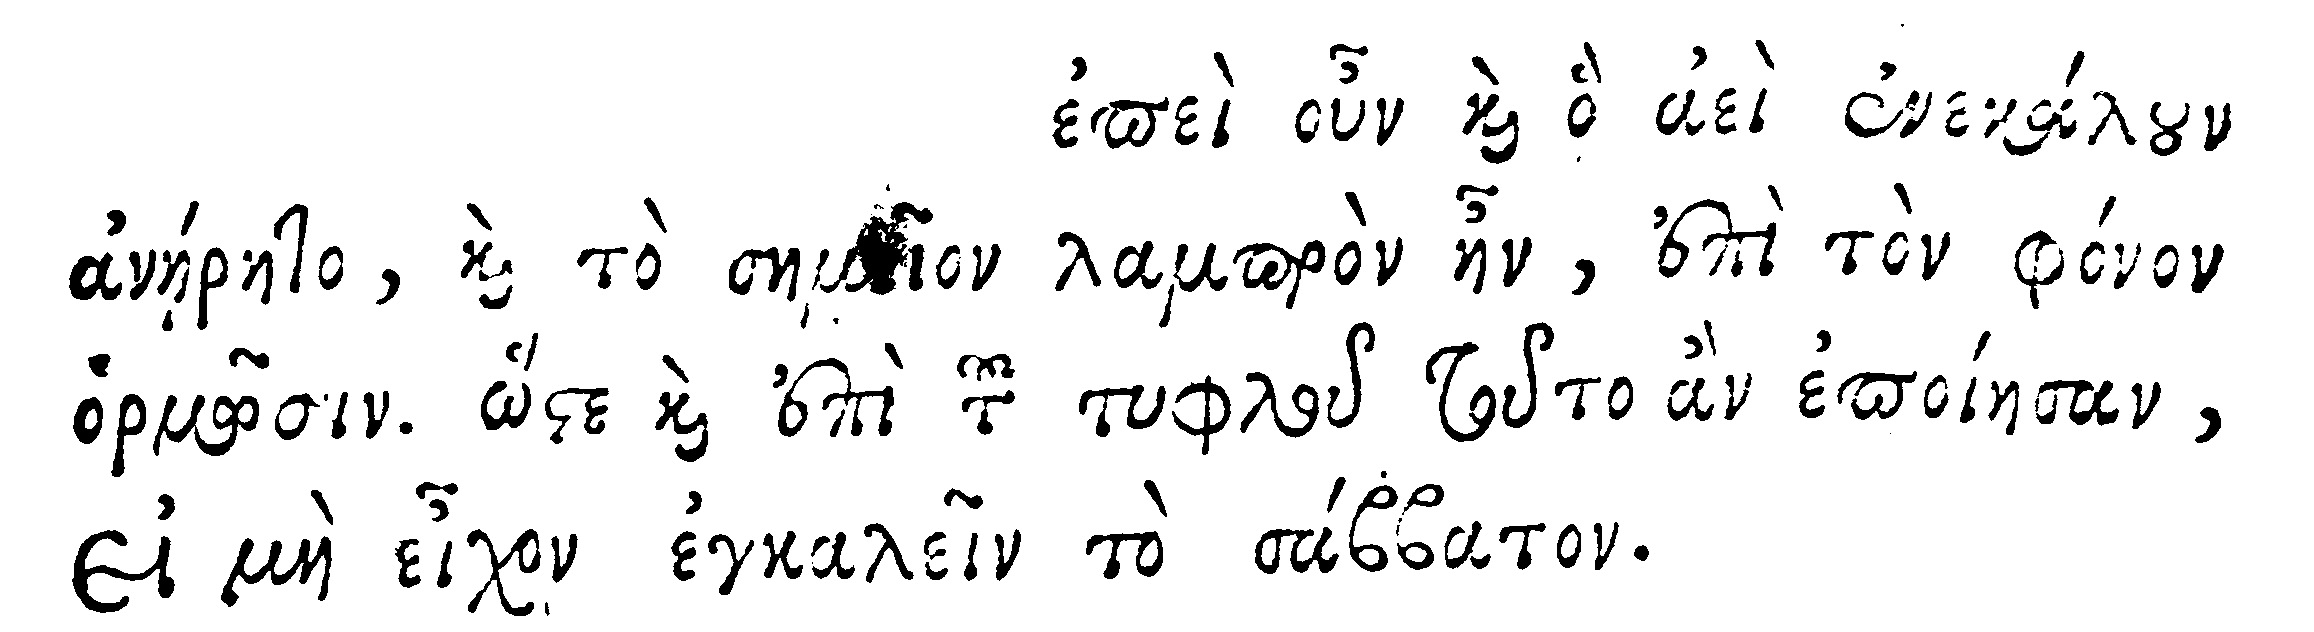 ἐπεὶ οὖν καὶ ὃ ἀεὶ ἐνεκάλουν
ἀνῄρητο, καὶ τὸ σημεῖον λαμπρὸν ἦν, ἐπὶ τὸν φόνον
ὁρμῶσιν. ὥστε καὶ ἐπὶ τοῦ τυφλοῦ τοῦτο ἂν ἐποίησαν,
εἰ μὴ εἶχον ἐγκαλεῖν τὸ σάββατον.